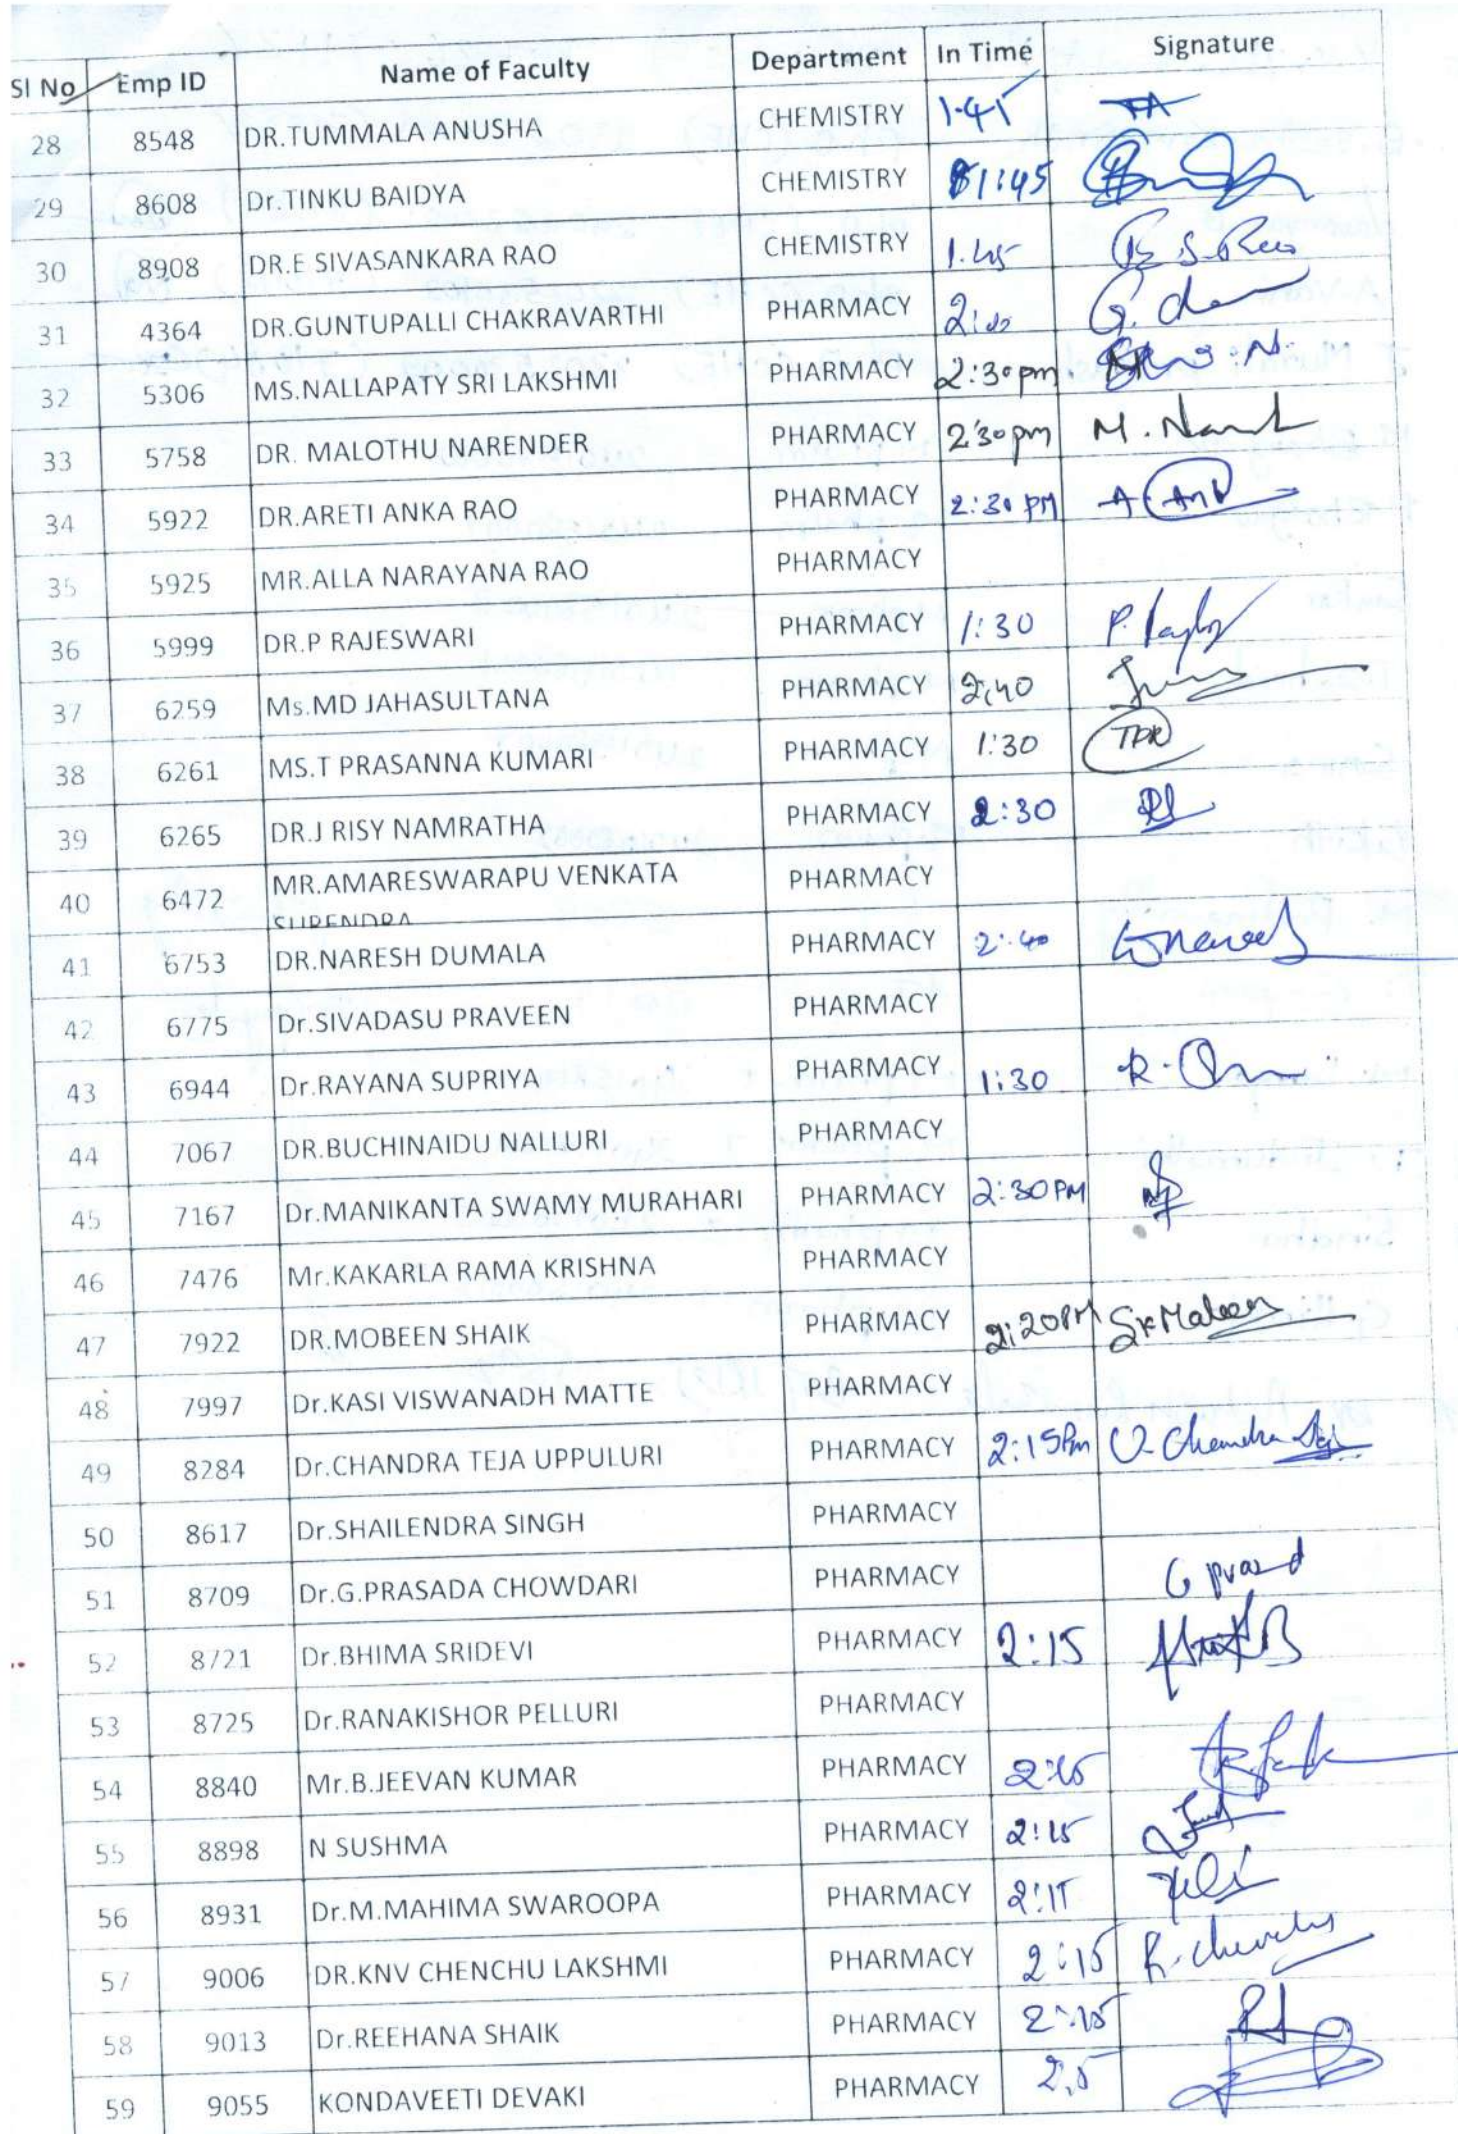 Sl No Emp ID Name of Faculty Department In Time Signature
28 8548 DR.TUMMALA ANUSHA CHEMISTRY 1-45 TA
29 8608 Dr.TINKU BAIDYA CHEMISTRY 1:45
30 8908 DR.E SIVASANKARA RAO CHEMISTRY 1.45 E S. Rao
31 4364 DR.GUNTUPALLI CHAKRAVARTHI PHARMACY G.
32 5306 MS.NALLAPATY SRI LAKSHMI PHARMACY 2:30pm
33 5758 DR. MALOTHU NARENDER PHARMACY 2:30pm M.
34 5922 DR.ARETI ANKA RAO PHARMACY 2:30 PM A
35 5925 MR.ALLA NARAYANA RAO PHARMACY
36 5999 DR.P RAJESWARI PHARMACY 1:30 P.
37 6259 Ms.MD JAHASULTANA PHARMACY 2:40
38 6261 MS.T PRASANNA KUMARI PHARMACY 1:30 TPR
39 6265 DR.J RISY NAMRATHA PHARMACY 2:30
40 6472 MR.AMARESWARAPU VENKATA PHARMACY
SURENDRA
41 6753 DR.NARESH DUMALA PHARMACY 2:40
42 6775 Dr.SIVADASU PRAVEEN PHARMACY
43 6944 Dr.RAYANA SUPRIYA PHARMACY 1:30 R.
44 7067 DR.BUCHINAIDU NALLURI PHARMACY
45 7167 Dr.MANIKANTA SWAMY MURAHARI PHARMACY 2:30PM
46 7476 Mr.KAKARLA RAMA KRISHNA PHARMACY
47 7922 DR.MOBEEN SHAIK PHARMACY 2:20PM
48 7997 Dr.KASI VISWANADH MATTE PHARMACY
49 8284 Dr.CHANDRA TEJA UPPULURI PHARMACY 2:15Pm U. Chandra
50 8617 Dr.SHAILENDRA SINGH PHARMACY
51 8709 Dr.G.PRASADA CHOWDARI PHARMACY G
52 8721 Dr.BHIMA SRIDEVI PHARMACY 2:15
53 8725 Dr.RANAKISHOR PELLURI PHARMACY
54 8840 Mr.B.JEEVAN KUMAR PHARMACY 2:15
55 8898 N SUSHMA PHARMACY 2:15
56 8931 Dr.M.MAHIMA SWAROOPA PHARMACY 2:15
57 9006 DR.KNV CHENCHU LAKSHMI PHARMACY 2:15
58 9013 Dr.REEHANA SHAIK PHARMACY 2:15
59 9055 KONDAVEETI DEVAKI PHARMACY